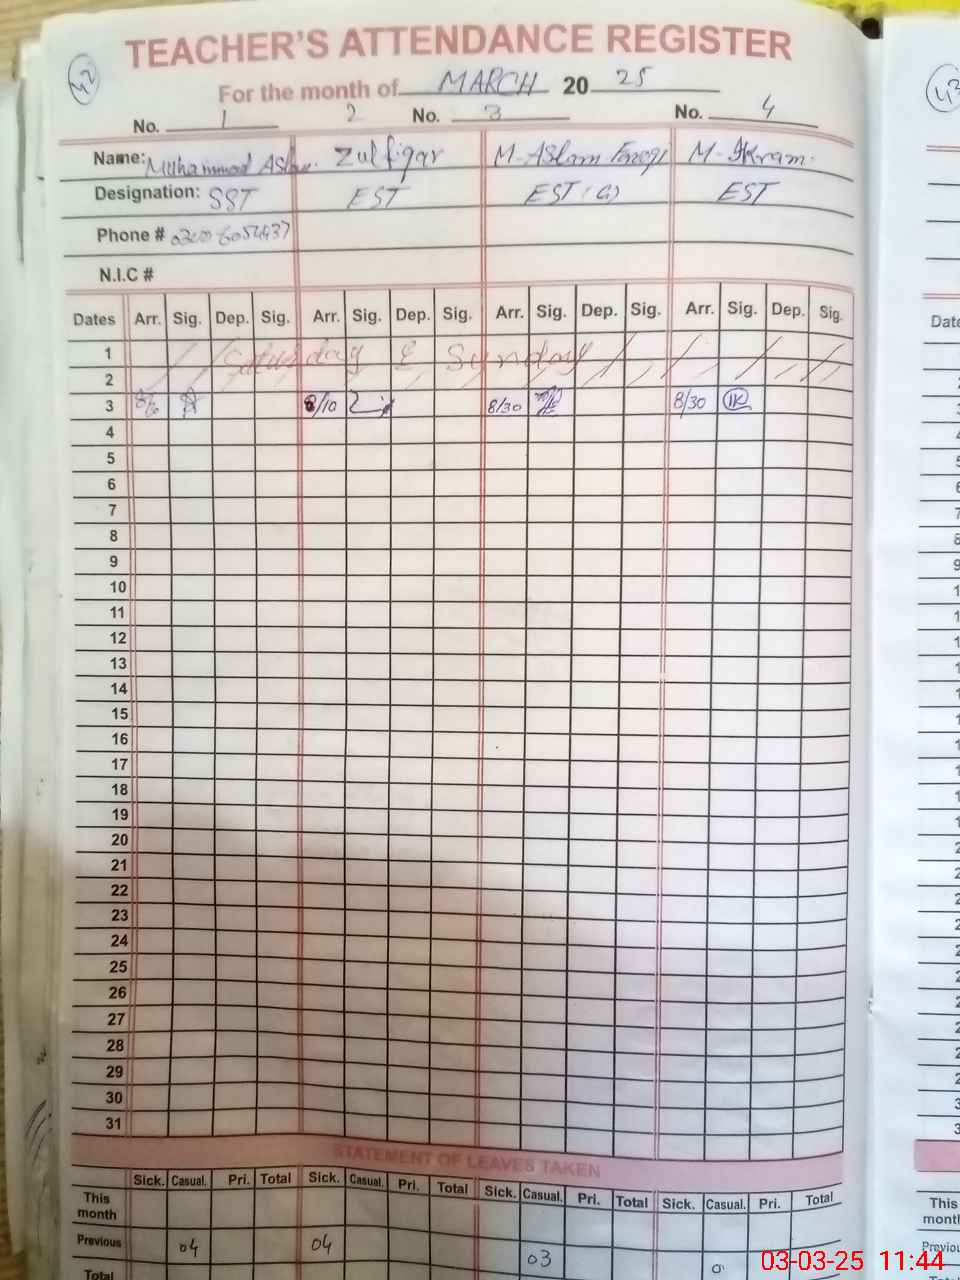 42
TEACHER'S ATTENDANCE REGISTER
For the month of MARCH 20 25
No. 1 2 No. 3 No. 4
Name: Muhammad Aslam Zulfiqar M-Aslam M-Ikram.
Designation: SST EST EST (G) EST
Phone #
N.I.C #
Dates Arr. Sig. Dep. Sig. Arr. Sig. Dep. Sig. Arr. Sig. Dep. Sig. Arr. Sig. Dep. Sig.
1 Saturday & Sunday
2
3 8/10 8/30 8/30 IK
4
5
6
7
8
9
10
11
12
13
14
15
16
17
18
19
20
21
22
23
24
25
26
27
28
29
30
31
STATEMENT OF LEAVES TAKEN
Sick. Casual. Pri. Total Sick. Casual. Pri. Total Sick. Casual. Pri. Total Sick. Casual. Pri. Total
This month
Previous 04 04 03
Total
03-03-25 11:44
43
Date
This
month
Previou